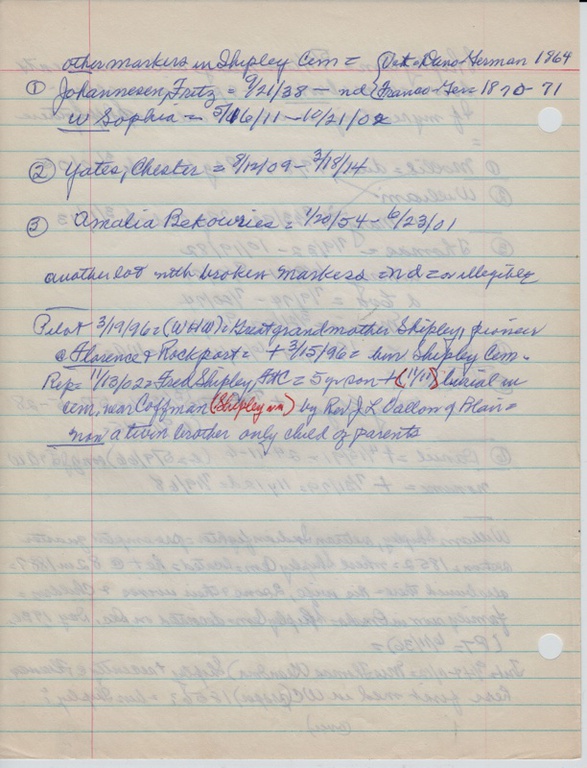 other markers in Shipley Cem = {Vet = Dano-German 1864
① Johannesen, Fritz = 9/21/38 - nd {Franco-Ger = 1870-71
w Sophia = 5/16/11 - 10/21/02
② Yates, Chester = 8/12/09 - 3/18/14
③ Amalia Bekowries = 1/20/54 - 6/23/01
another lot with broken markers = nd = or illegible
Pilot 3/19/96 = (WHW) = Great grandmother Shipley, pioneer
@ Florence & Rockport = + 3/15/96 = bur Shipley Cem.
Rep = 11/13/02 = Fred Shipley, = 5 yr son + (11/11) burial in
cem, near Coffman (Shipley) by Rev. J L of Blair =
non a twin brother only child of parents